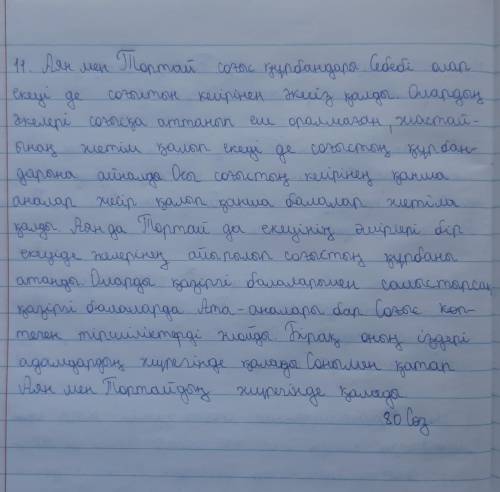 11. Аян мен Тортай соғыс құрбандары Себебі олар
екеуі де соғыстың кесірінен әкесіз қалды. Олардың
әкелері соғысқа аттанып еш оралмаған, жастай-
ынан жетім қалып екеуі де соғыстың құрбан-
дарына айналды Осы соғыстың кесірінен қанша
аналар жесір қалып қанша балалар жетім
қалды Аян да Тортай да екеуінің өмірлері бір
екеуіде әкелерінен айырылып соғыстың құрбаны
атанды Оларды қазіргі балалармен салыстырсақ
қазіргі балаларда Ата-аналары бар Соғыс көп-
теген тіршіліктерді жойды Бірақ оның іздері
адамдардың жүрегінде қалады Сонымен қатар
Аян мен Тортайдың жүрегінде қалады
80 Сөз